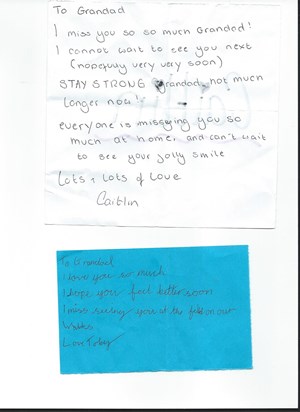 To Grandad
I miss you so so much Grandad!
I cannot wait to see you next
(hopefully very very soon)
STAY STRONG Grandad, not much
longer now!
everyone is missging you so
much at home, and can't wait
to see your jolly smile
Lots & Lots of Love
Caitlin
To Grandad
I love you so much
I hope you feel better soon
I miss seeing you at the on our
Walks
Love Toby